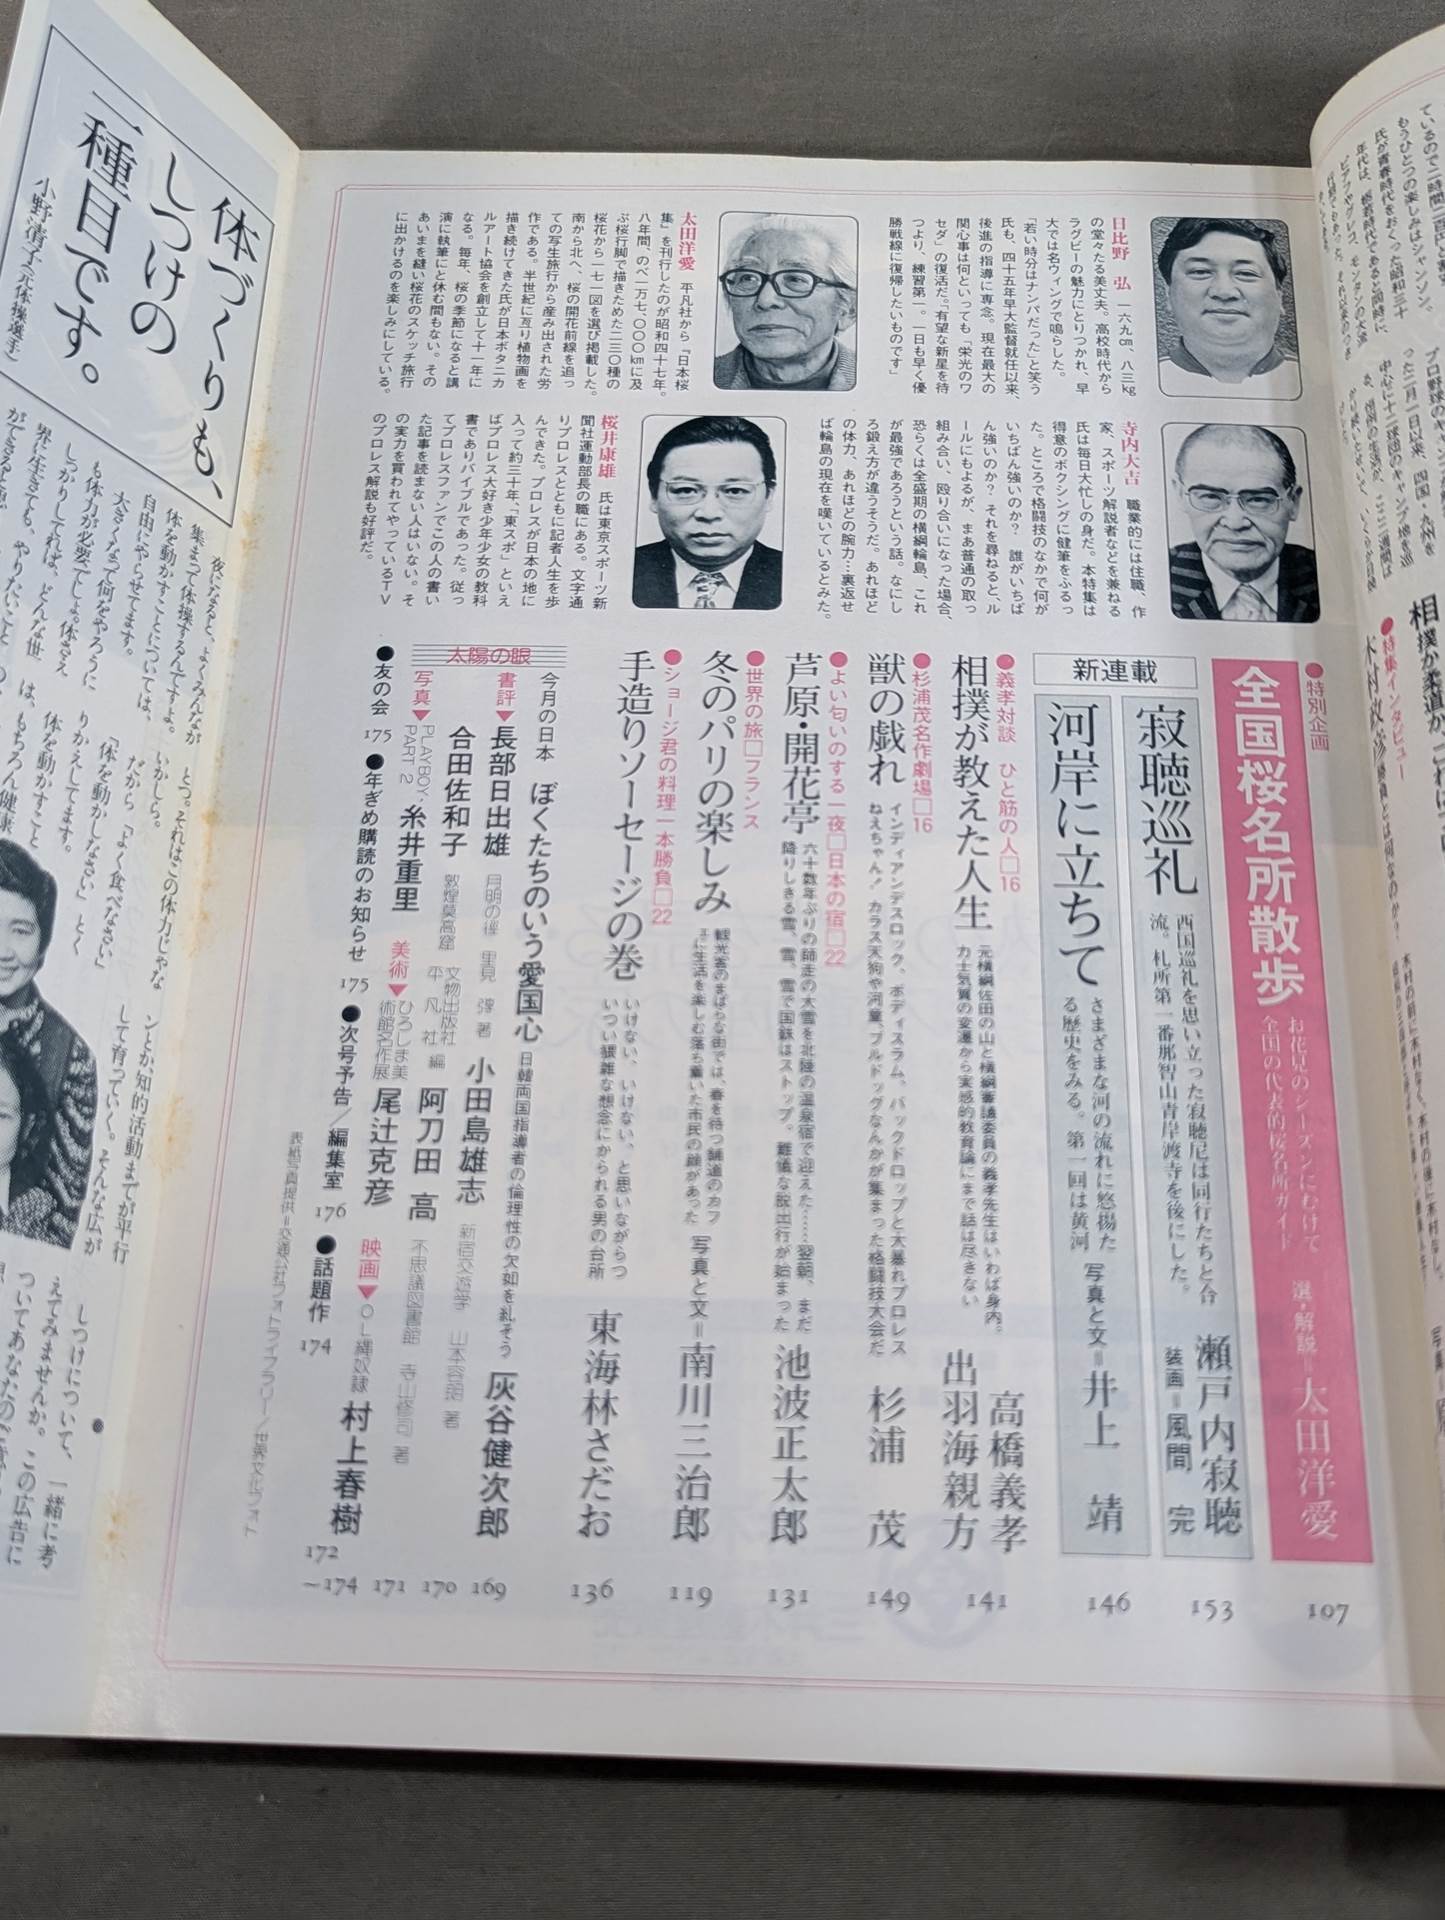 日比野 弘 一六九cm、八三kg
の堂々たる美丈夫。高校時代から
ラグビーの魅力にとりつかれ、早
大では名ウィングで鳴らした。
「若い時分はナンパだった」と笑う
氏も、四十五年早大監督就任以来、
後進の指導に専念。現在最大の
関心事は何といっても「栄光のワ
セダ」の復活だ。「有望な新星を待
つより、練習第一。一日も早く優
勝戦線に復帰したいものです」
太田洋愛 平凡社から『日本桜
集』を刊行したのが昭和四十七年。
八年間、のべ一万七、〇〇〇kmに及
ぶ桜行脚で描きためた二三〇種の
桜花から一七一図を選び掲載した。
南から北へ、桜の開花前線を追っ
ての写生旅行から産み出された労
作である。半世紀に亙り植物画を
描き続けてきた氏が日本ボタニカ
ルアート協会を創立して十一年に
なる。毎年、桜の季節になると講
演に執筆にと休む間もない。その
あいまを縫い桜花のスケッチ旅行
に出かけるのを楽しみにしている。
寺内大吉 職業的には住職、作
家、スポーツ解説者などを兼ねる
氏は毎日大忙しの身だ。本特集は
得意のボクシングに健筆をふるっ
た。ところで格闘技のなかで何が
いちばん強いのか? 誰がいちば
ん強いのか? それを尋ねると、ル
ールにもよるが、まあ普通の取っ
組み合い、殴り合いになった場合、
恐らくは全盛期の横綱輪島、これ
が最強であろうという話。なにし
ろ鍛え方が違うそうだ。あれほど
の体力、あれほどの腕力…裏返せ
ば輪島の現在を嘆いているとみた。
桜井康雄 氏は東京スポーツ新
聞社運動部長の職にある。文字通
りプロレスとともに記者人生を歩
んできた。プロレスが日本の地に
入って約三十年、「東スポ」といえ
ばプロレス大好き少年少女の教科
書でありバイブルであった。従っ
てプロレスファンでこの人の書い
た記事を読まない人はいない。そ
の実力を買われてやっているTV
のプロレス解説も好評だ。
●特別企画
全国桜名所散歩 お花見のシーズンにむけて
全国の代表的桜名所ガイド 選・解説=太田洋愛 107
新連載
寂聴巡礼 西国巡礼を思い立った寂聴尼は同行たちと合
流。札所第一番那智山青岸渡寺を後にした。 瀬戸内寂聴
装画=風間 完 153
河岸に立ちて さまざまな河の流れに悠揚た
る歴史をみる。第一回は黄河 写真と文=井上 靖 146
●義孝対談 ひと筋の人□16
相撲が教えた人生 元横綱佐田の山と横綱審議委員の義孝先生はいわば身内。
力士気質の変遷から実感的教育論にまで話は尽きない 高橋義孝
出羽海親方 141
●杉浦茂名作劇場□16
獣の戯れ インディアンデスロック、ボディスラム、バックドロップと大暴れプロレス
ねえちゃん! カラス天狗や河童、ブルドッグなんかが集まった格闘技大会だ 杉浦 茂 149
●よい匂いのする一夜□日本の宿□22
芦原・開花亭 六十数年ぶりの師走の大雪を北陸の温泉宿で迎えた……翌朝、まだ
降りしきる雪、雪、雪で国鉄はストップ。難儀な脱出行が始まった 池波正太郎 131
●世界の旅□フランス
冬のパリの楽しみ 観光客のまばらな街では、春を待つ舗道のカフ
ェに生活を楽しむ落ち着いた市民の顔があった 写真と文=南川三治郎 119
●ショージ君の料理一本勝負□22
手造りソーセージの巻 いけない、いけない、と思いながらつ
いつい猥雑な想念にかられる男の台所 東海林さだお 136
太陽の眼
今月の日本 ぼくたちのいう愛国心 日韓両国指導者の倫理性の欠如を糺そう 灰谷健次郎 169
書評▼長部日出雄 月明の径 里見 弴 著 小田島雄志 新宿交遊学 山本容朗 著 170
合田佐和子 敦煌莫高窟 文物出版社
平凡社 編 阿刀田 高 不思議図書館 寺山修司 著 171
写真▼ PLAYBOY・
PART 2 糸井重里 美術▼ ひろしま美
術館名作展 尾辻克彦 映画▼ OL縄奴隷 村上春樹 172
~174
●友の会 175 ●年ぎめ購読のお知らせ 175 ●次号予告/編集室 176 ●話題作 174
表紙写真提供=交通公社フォトライブラリー/世界文化フォト
体づくりも、
しつけの
一種目です。
小野清子(元体操選手)
夜になると、よくみんなが
集まって体操するんですよ。
体を動かすことについては、
自由にやらせてます。
大きくなって何をやろうに
も体力が必要でしょ。体さえ
しっかりしてれば、どんな世
界に生きても、やりたいこと
とつ。それはこの体力じゃな
いかしら。
だから「よく食べなさい」
「体を動かしなさい」とく
りかえしてます。
体を動かすこと
は、
もちろん健康
ンとか、知的活動までが平行
して育っていく。そんな広が
しつけについて、一緒に考
えてみませんか。この広告に